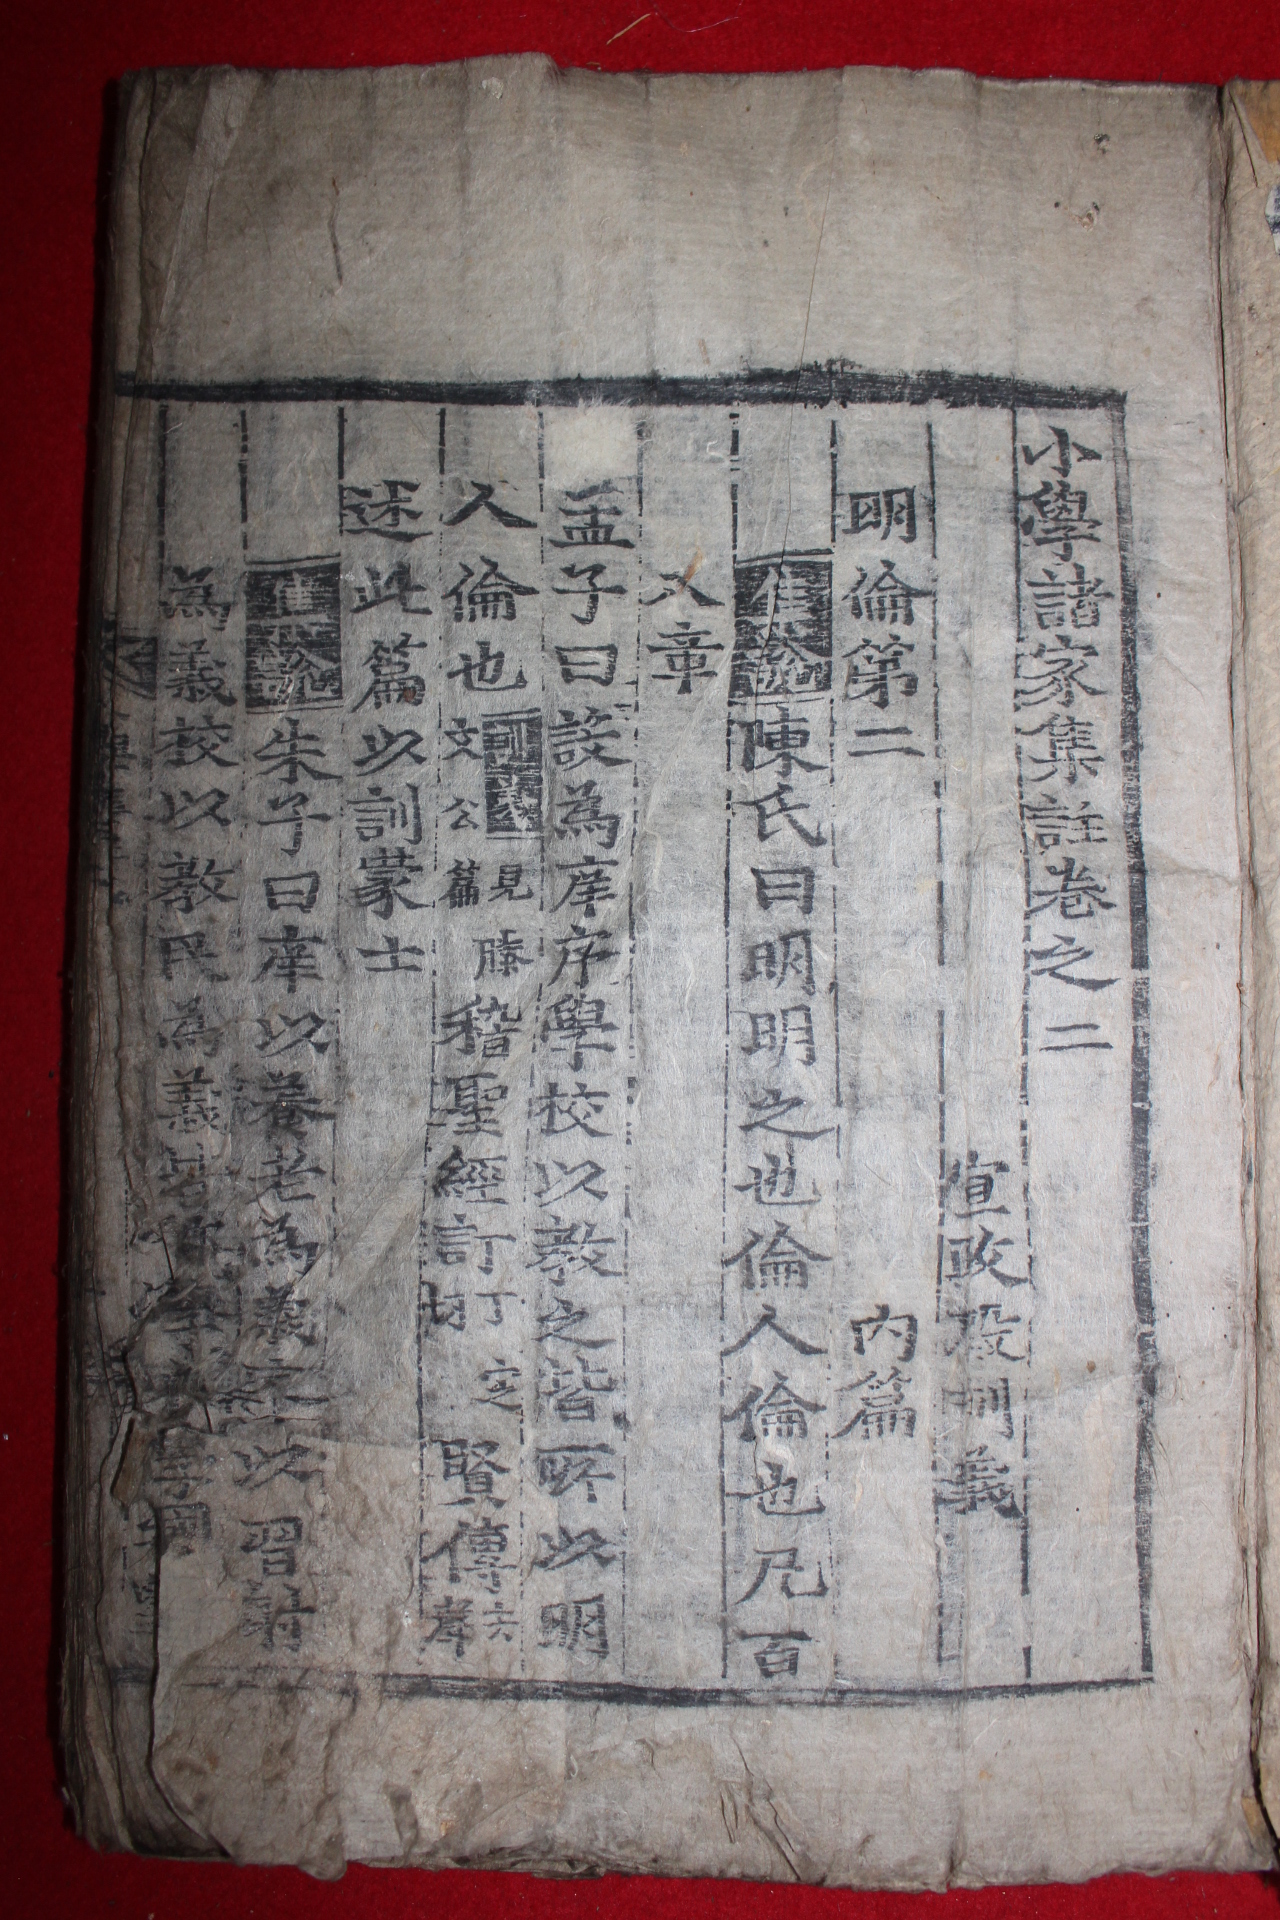 小學諸家集註卷之二
宣政殿訓義
明倫第二 內篇
集說陳氏曰明明之也倫人倫也凡百
又章
孟子曰設為庠序學校以敎之皆所以明
人倫也訓義見滕文公篇稽聖經訂丁定切賢傳
述此篇以訓蒙士
集說朱子曰庠以養老為義以習射
為義校以敎民為義